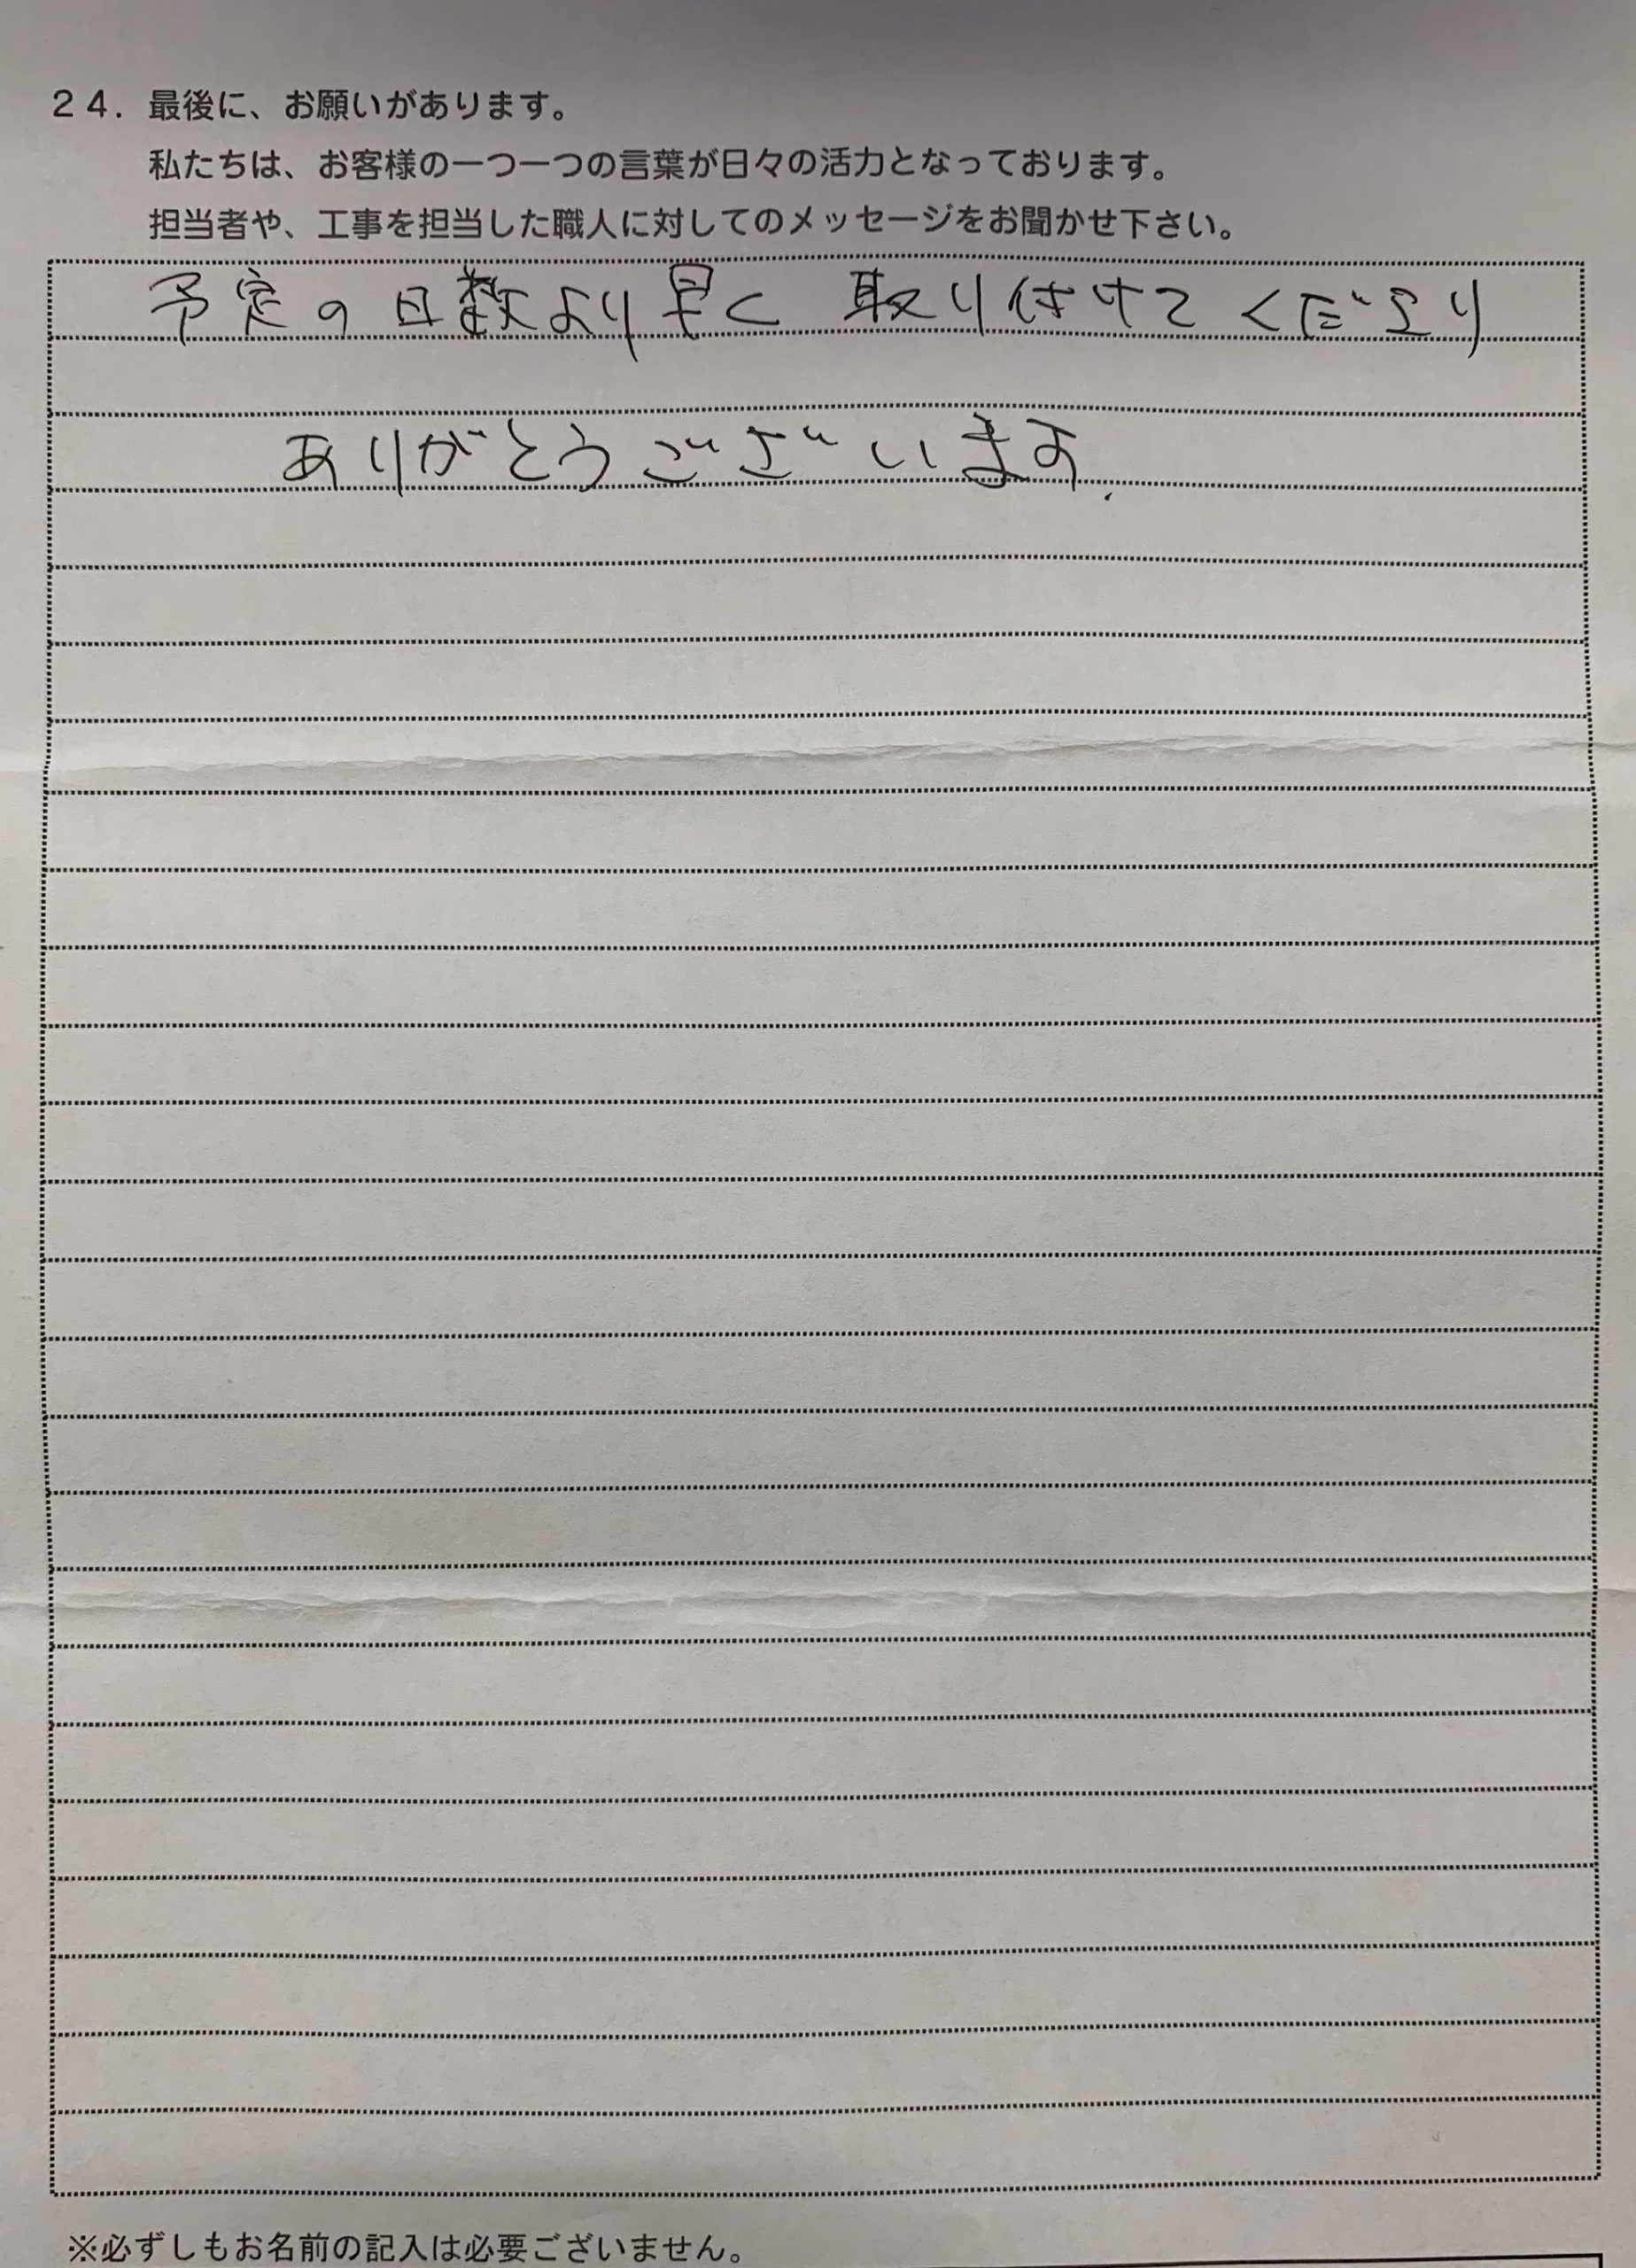 24. 最後に、お願いがあります。
私たちは、お客様の一つ一つの言葉が日々の活力となっております。
担当者や、工事を担当した職人に対してのメッセージをお聞かせ下さい。
予定の日数より早く 取り付けてくださり
ありがとうございます.
※必ずしもお名前の記入は必要ございません。